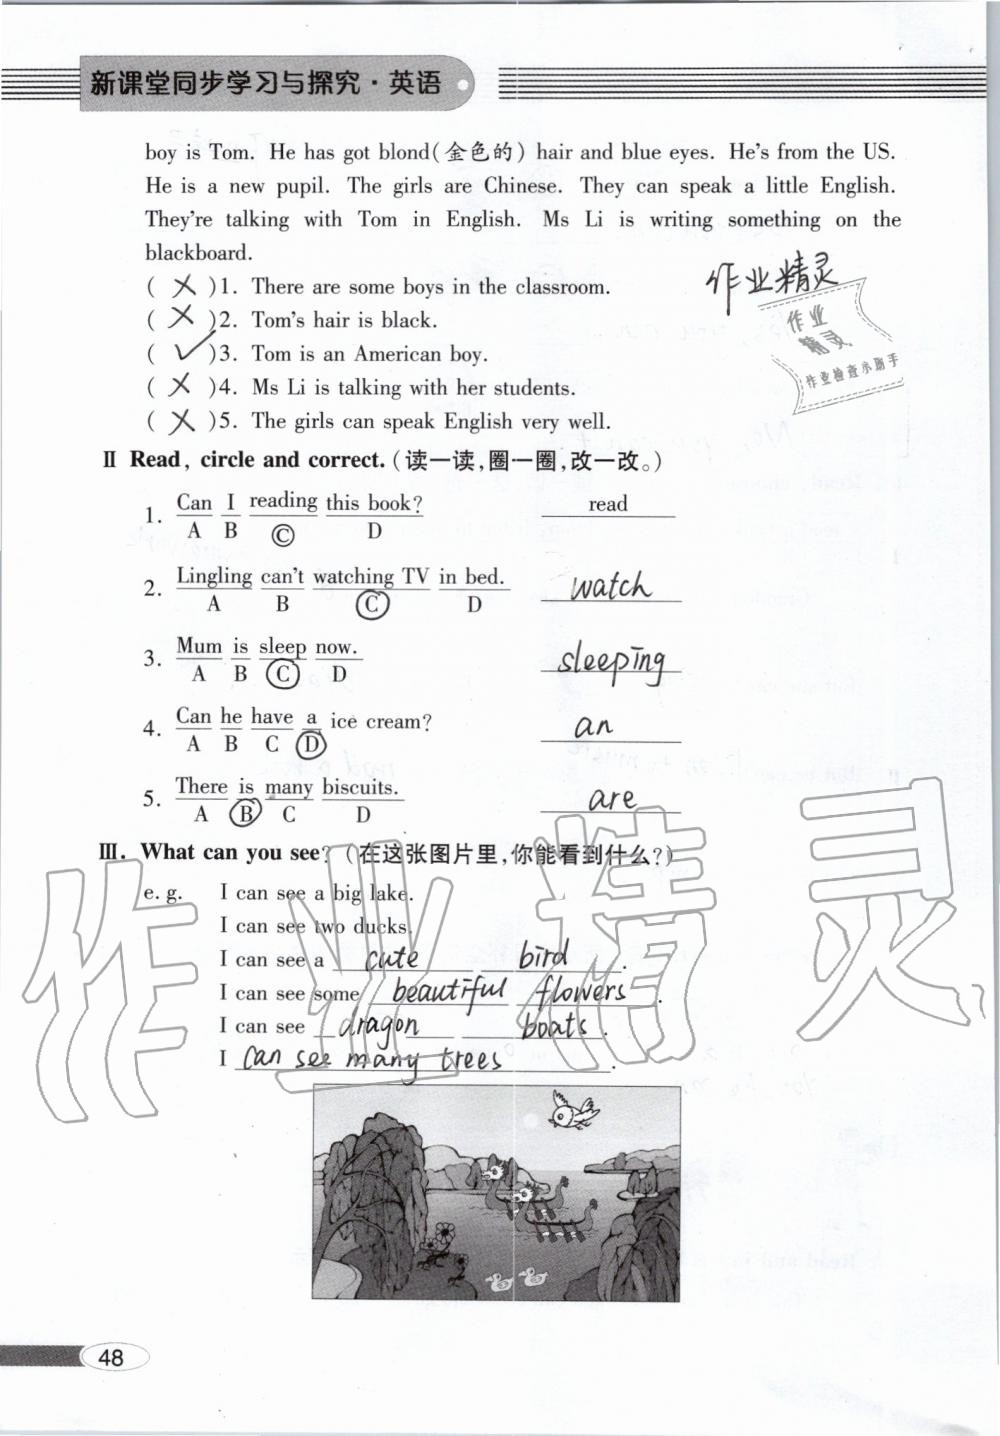 新课堂同步学习与探究·英语
boy is Tom. He has got blond(金色的) hair and blue eyes. He's from the US.
He is a new pupil. The girls are Chinese. They can speak a little English.
They're talking with Tom in English. Ms Li is writing something on the
blackboard.
( × )1. There are some boys in the classroom.
( × )2. Tom's hair is black.
( ✓ )3. Tom is an American boy.
( × )4. Ms Li is talking with her students.
( × )5. The girls can speak English very well.
作业精灵
作业
精灵
作业检查小助手
Ⅱ Read, circle and correct.(读一读,圈一圈,改一改。)
1. Can I reading this book? read
A B C D
2. Lingling can't watching TV in bed. watch
A B C D
3. Mum is sleep now. sleeping
A B C D
4. Can he have a ice cream? an
A B C D
5. There is many biscuits. are
A B C D
Ⅲ. What can you see? (在这张图片里,你能看到什么?)
e. g. I can see a big lake.
I can see two ducks.
I can see a cute bird.
I can see some beautiful flowers.
I can see dragon boats.
I can see many trees.
作业精灵
48